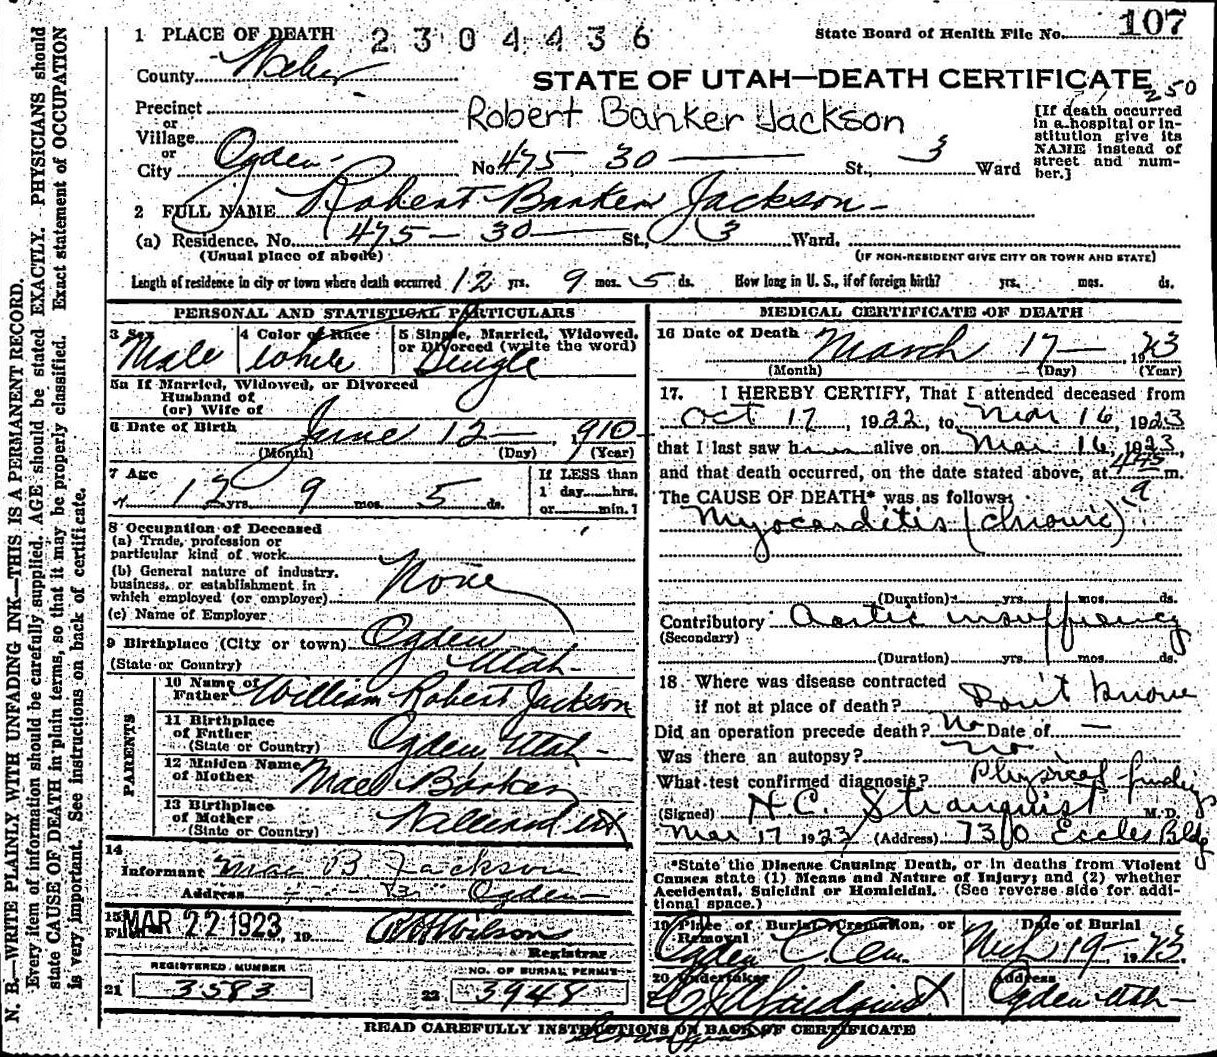 1 PLACE OF DEATH 2304436 State Board of Health File No. 107
County Weber
STATE OF UTAH—DEATH CERTIFICATE 250
Precinct
or
Village
or
City Ogden
Robert Banker Jackson
No. 475 - 30 — St., 3 Ward
[If death occurred in a hospital or institution give its NAME instead of street and number.]
2 FULL NAME Robert Barker Jackson
(a) Residence. No. 475 - 30 — St., 3 Ward.
(Usual place of abode) (IF NON-RESIDENT GIVE CITY OR TOWN AND STATE)
Length of residence in city or town where death occurred 12 yrs. 9 mos. 5 ds. How long in U. S., if of foreign birth? yrs. mos. ds.
PERSONAL AND STATISTICAL PARTICULARS
3 Sex Male
4 Color or Race White
5 Single, Married, Widowed, or Divorced (write the word) Single
5a If Married, Widowed, or Divorced
Husband of
(or) Wife of
6 Date of Birth June 12 — , 1910
(Month) (Day) (Year)
7 Age 12 yrs. 9 mos. 5 ds.
If LESS than
1 day......hrs.
or......min.?
8 Occupation of Deceased
(a) Trade, profession or
particular kind of work
(b) General nature of industry,
business, or establishment in
which employed (or employer) None
(c) Name of Employer
9 Birthplace (City or town) Ogden
(State or Country) Utah
PARENTS
10 Name of Father William Robert Jackson
11 Birthplace of Father Ogden, Utah
(State or Country)
12 Maiden Name of Mother Mae Barker
13 Birthplace of Mother
(State or Country)
14
Informant Mae B Jackson
Address Ogden
15 Filed MAR 22 1923, 19 Wilson
Registrar
REGISTERED NUMBER
21 3583
NO. OF BURIAL PERMIT
22 3948
MEDICAL CERTIFICATE OF DEATH
16 Date of Death March 17 — 1923
(Month) (Day) (Year)
17. I HEREBY CERTIFY, That I attended deceased from
Oct 17, 1922, to Mar 16, 1923
that I last saw him alive on Mar 16, 1923,
and that death occurred, on the date stated above, at 445 a m.
The CAUSE OF DEATH* was as follows:
Myocarditis (chronic)
(Duration) yrs. mos. ds.
Contributory Aortic insufficiency
(Secondary)
(Duration) yrs. mos. ds.
18 Where was disease contracted
if not at place of death? Don't know
Did an operation precede death? No Date of —
Was there an autopsy? no
What test confirmed diagnosis? Physical findings
(Signed) H.C. Stranquist M.D.
Mar 17 1923 (Address) 730 Eccles Bldg
*State the Disease Causing Death, or in deaths from Violent
Causes state (1) Means and Nature of Injury; and (2) whether
Accidental, Suicidal or Homicidal. (See reverse side for addi-
tional space.)
19 Place of Burial, Cremation, or Removal Ogden C. Cem.
Date of Burial Mch 19 - 1923.
20 Undertaker
Address Ogden Utah
READ CAREFULLY INSTRUCTIONS ON BACK OF CERTIFICATE
N. B.—WRITE PLAINLY WITH UNFADING INK—THIS IS A PERMANENT RECORD.
Every item of information should be carefully supplied. AGE should be stated EXACTLY. PHYSICIANS should
state CAUSE OF DEATH in plain terms, so that it may be properly classified. Exact statement of OCCUPATION
is very important. See instructions on back of certificate.